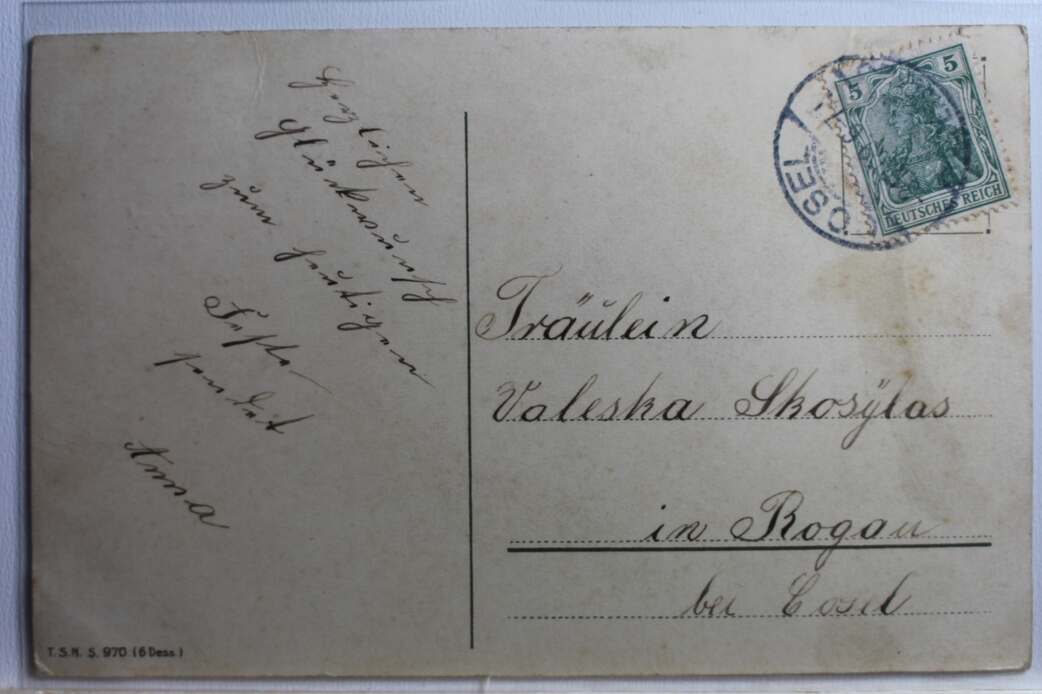 Herzlichen
Glückwunsch
zum heutigen
Feste
sendet
Anna
5
5
DEUTSCHES REICH
COSEL
Fräulein
Valeska Skosÿlas
in Rogau
bei Cosel
T.S.N. S. 970 (6 Dess.)